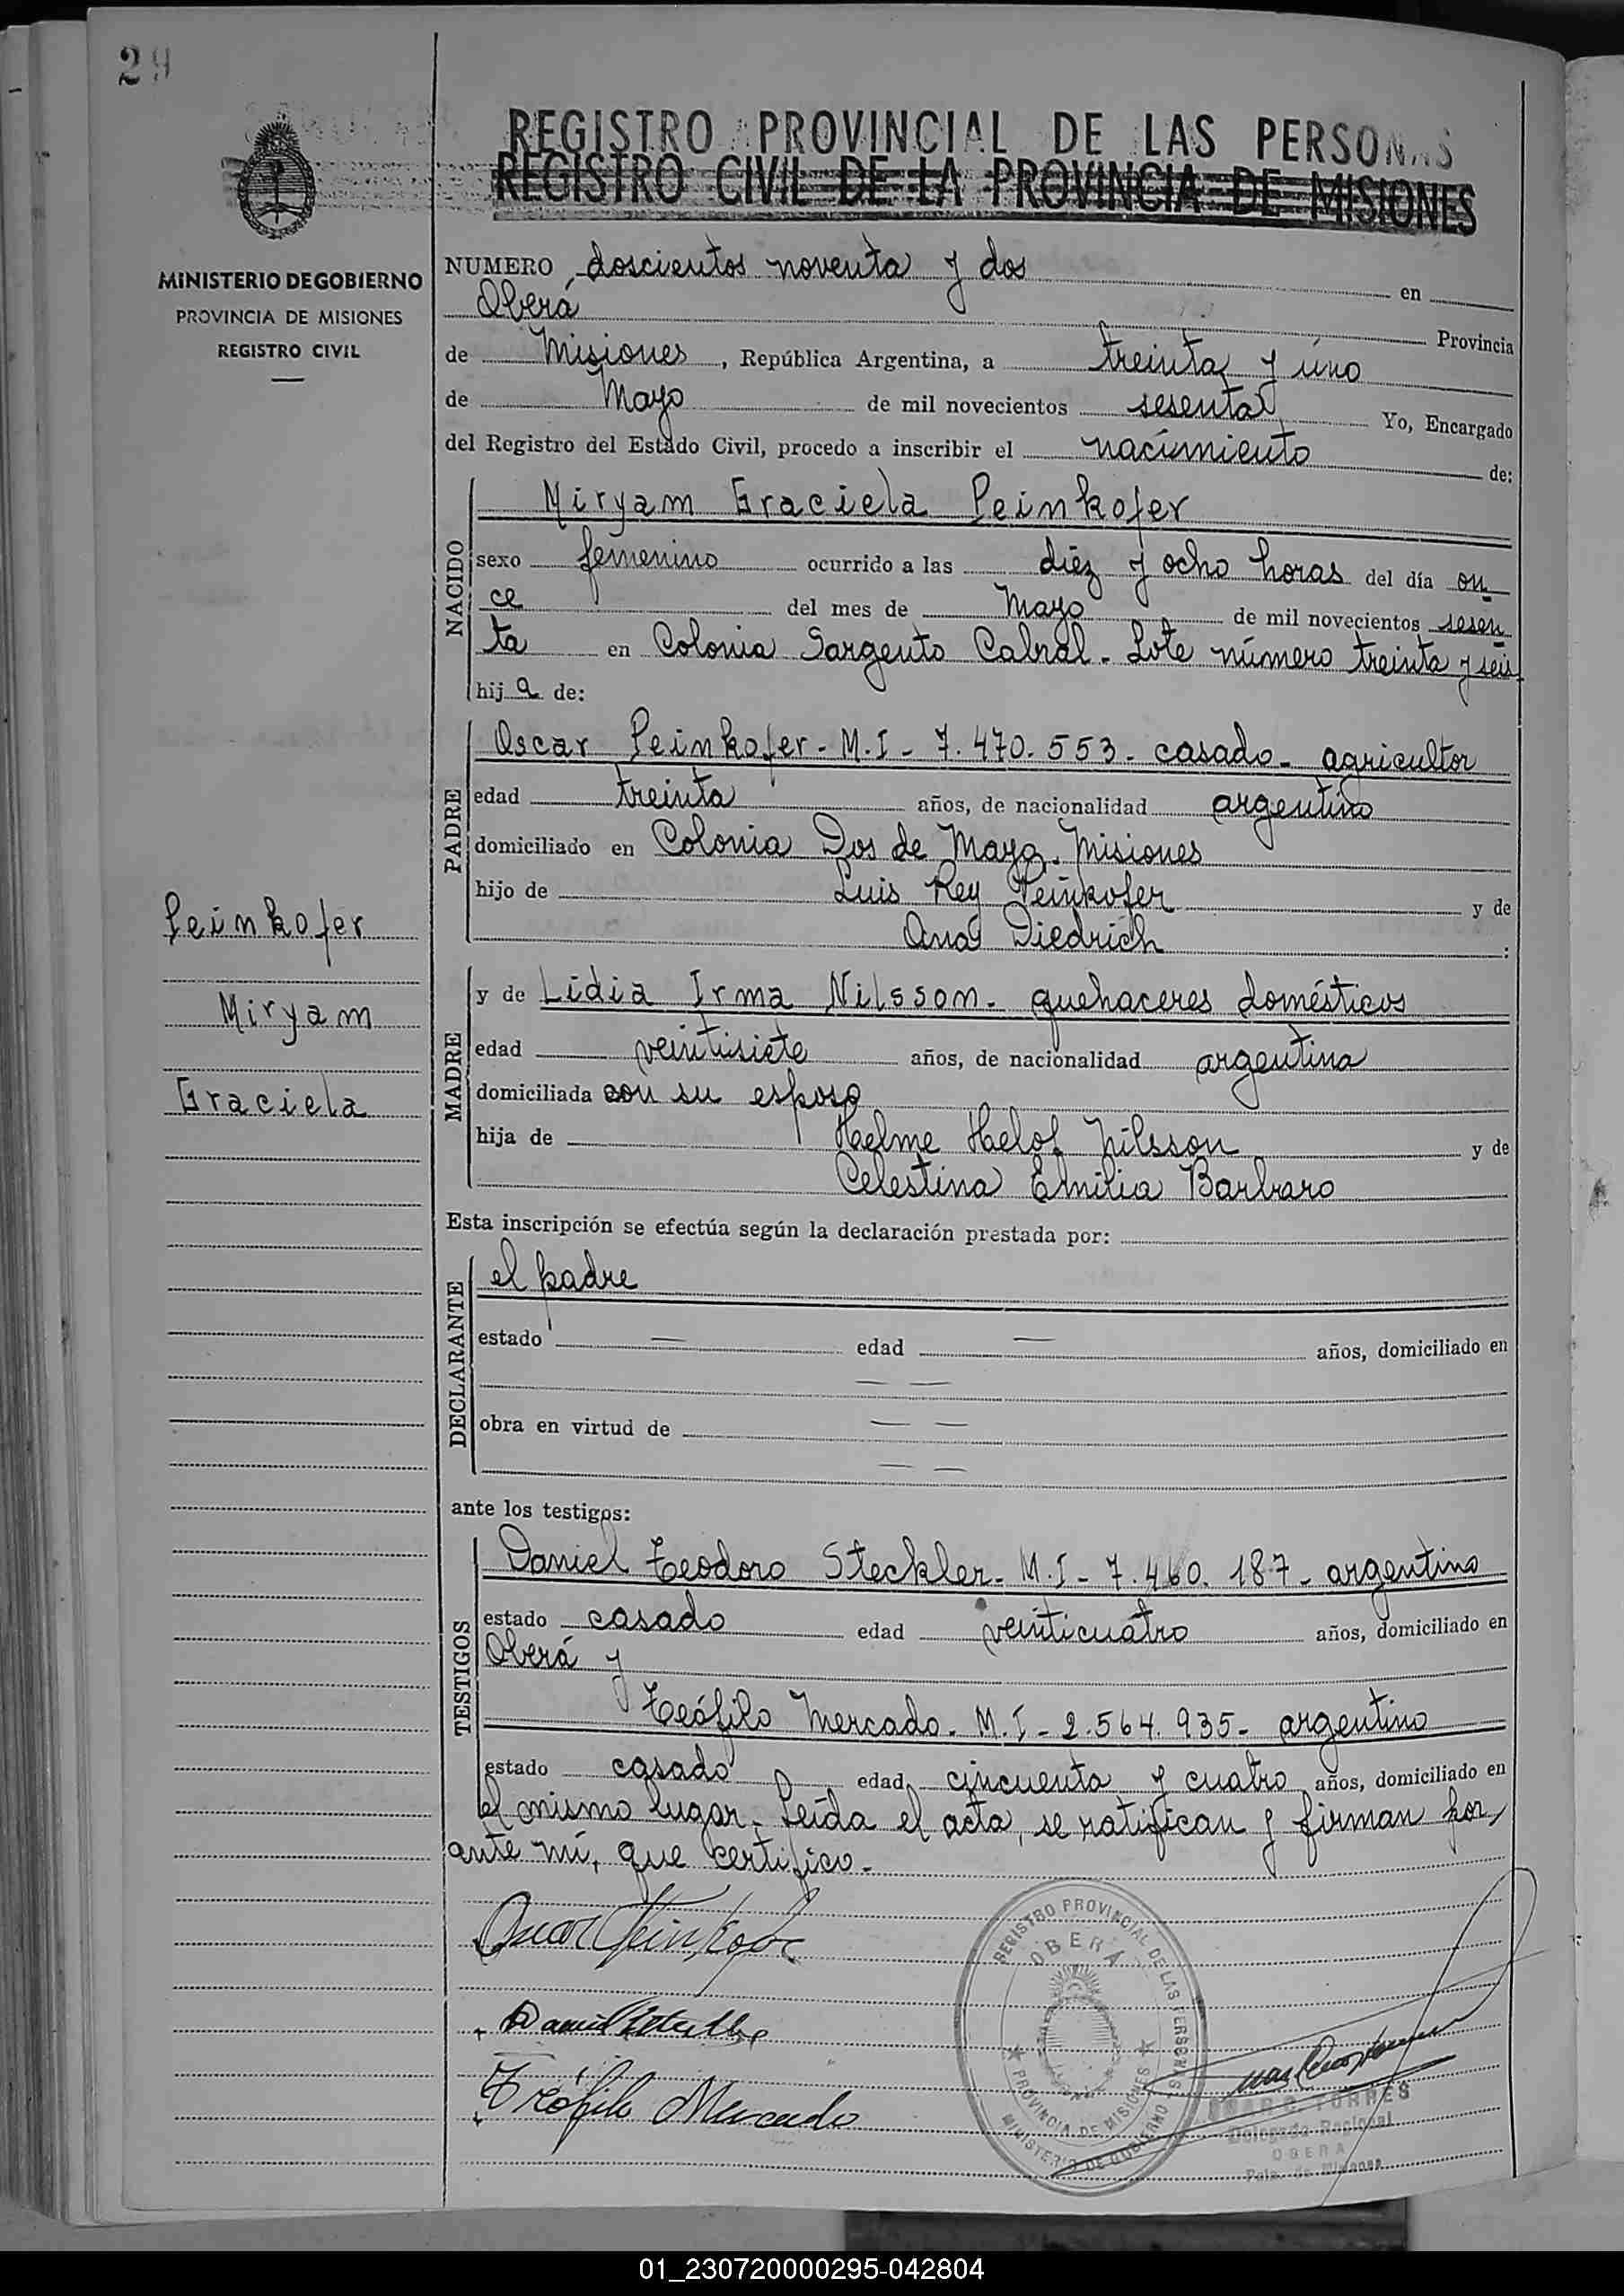 29
REGISTRO PROVINCIAL DE LAS PERSONAS
REGISTRO CIVIL DE LA PROVINCIA DE MISIONES
MINISTERIO DE GOBIERNO
PROVINCIA DE MISIONES
REGISTRO CIVIL
NUMERO doscientos noventa y dos en
Oberá Provincia
de Misiones, República Argentina, a treinta y uno
de Mayo de mil novecientos sesenta Yo, Encargado
del Registro del Estado Civil, procedo a inscribir el nacimiento de:
NACIDO
Miryam Graciela Peinkofer
sexo femenino ocurrido a las diéz y ocho horas del día on
ce del mes de Mayo de mil novecientos sesen
ta en Colonia Sargento Cabral - Lote número treinta y seis
hij a de:
PADRE
Oscar Peinkofer - M.I - 7.470.553 - casado - agricultor
edad treinta años, de nacionalidad argentino
domiciliado en Colonia Dos de Mayo - Misiones
hijo de Luis Rey Peinkofer y de
Ana Diedrich :
Peinkofer
Miryam
Graciela
MADRE
y de Lidia Irma Nilsson - quehaceres domésticos
edad veintisiete años, de nacionalidad argentina
domiciliada con su esposo
hija de Helme Helof Nilsson y de
Celestina Emilia Barbaro
Esta inscripción se efectúa según la declaración prestada por:
DECLARANTE
el padre
estado — edad — años, domiciliado en
— —
obra en virtud de — —
— —
ante los testigos:
TESTIGOS
Daniel Teodoro Steckler - M.I - 7.460.187 - argentino
estado casado edad veinticuatro años, domiciliado en
Oberá y
Teófilo Mercado - M.I - 2.564.935 - argentino
estado casado edad cincuenta y cuatro años, domiciliado en
el mismo lugar. Leída el acta, se ratifican y firman por
ante mí, que certifico.-
Oscar Peinkofer
Teófilo Mercado
REGISTRO PROVINCIAL DE LAS PERSONAS
OBERÁ
PROVINCIA DE MISIONES
MINISTERIO DE GOBIERNO
TORRES
Delegado Regional
OBERA
Pcia. de Misiones
01_230720000295-042804